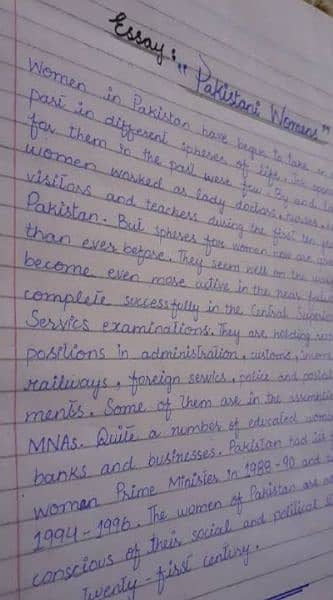 Essay: "Pakistani Womens"
Women in Pakistan have begun to take an
part in different spheres of life. The
for them in the past were few. By and
women worked as lady doctors, nurses,
visitors and teachers during the first ten
Pakistan. But spheres for women now are
than ever before. They seem well on the
become even more active in the near
complete successfully in the Central Superior
Servics examinations. They are holding
positions in administration, customs,
railways, foreign servics, police and postal
ments. Some of them are in the
MNAs. Quite a number of educated
banks and businesses. Pakistan had
woman Prime Minister in 1988-90 and
1994-1996. The women of Pakistan are
conscious of their social and political
Twenty-first century.